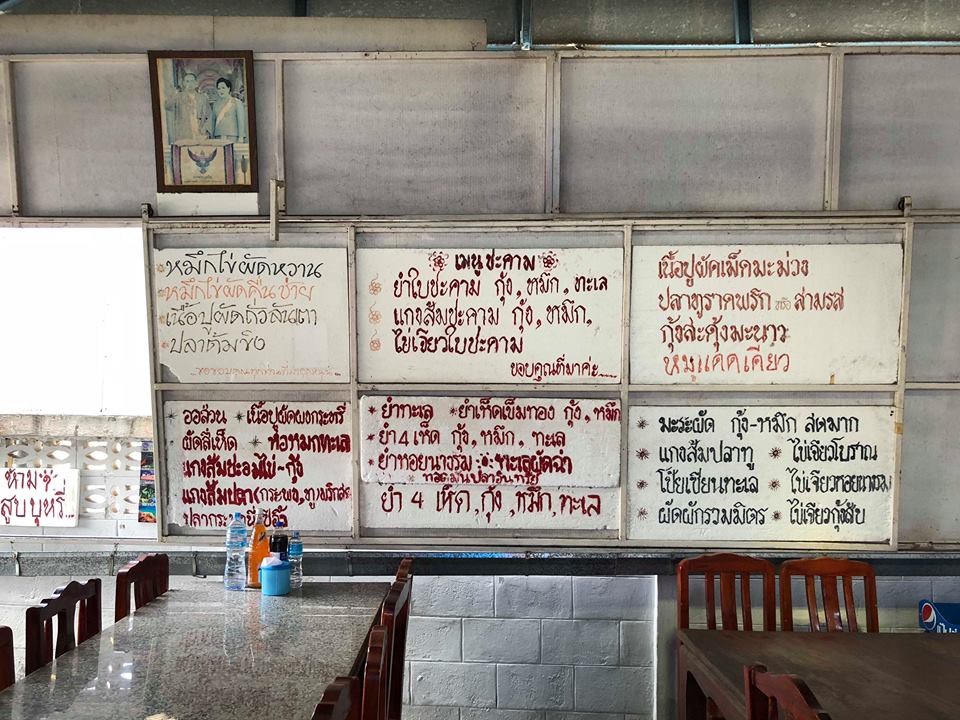 หมึกไข่ผัดหวาน
หมึกไข่ผัดคื่นช่าย
เนื้อปูผัดถั่วลันเตา
ปลาต้มขิง
เมนูชะคาม
ยำใบชะคาม กุ้ง, หมึก, ทะเล
แกงส้มชะคาม กุ้ง, หมึก,
ไข่เจียวใบชะคาม
ขอบคุณที่มาค่ะ
เนื้อปูผัดเม็ดมะม่วง
ปลาทูราดพริก หรือ สามรส
กุ้งสะดุ้งมะนาว
หมูแดดเดียว
ออส่วน เนื้อปูผัดผงกะหรี่
ผัดสี่เห็ด ห่อหมกทะเล
แกงส้มชะอมไข่-กุ้ง
แกงส้มปลา(กระพง,ทู)
ยำทะเล ยำเห็ดเข็มทอง กุ้ง, หมึก
ยำ 4 เห็ด กุ้ง, หมึก, ทะเล
ยำหอยนางรม ทะเลผัดฉ่า
ทอดมันปลาอินทรีย์
ยำ 4 เห็ด,กุ้ง,หมึก,ทะเล
มะระผัด กุ้ง-หมึก สดมาก
แกงส้มปลาทู ไข่เจียวโบราณ
โป๊ยเซียนทะเล ไข่เจียวหอยนางรม
ผัดผักรวมมิตร ไข่เจียวกุ้งสับ
ห้าม
สูบบุหรี่...